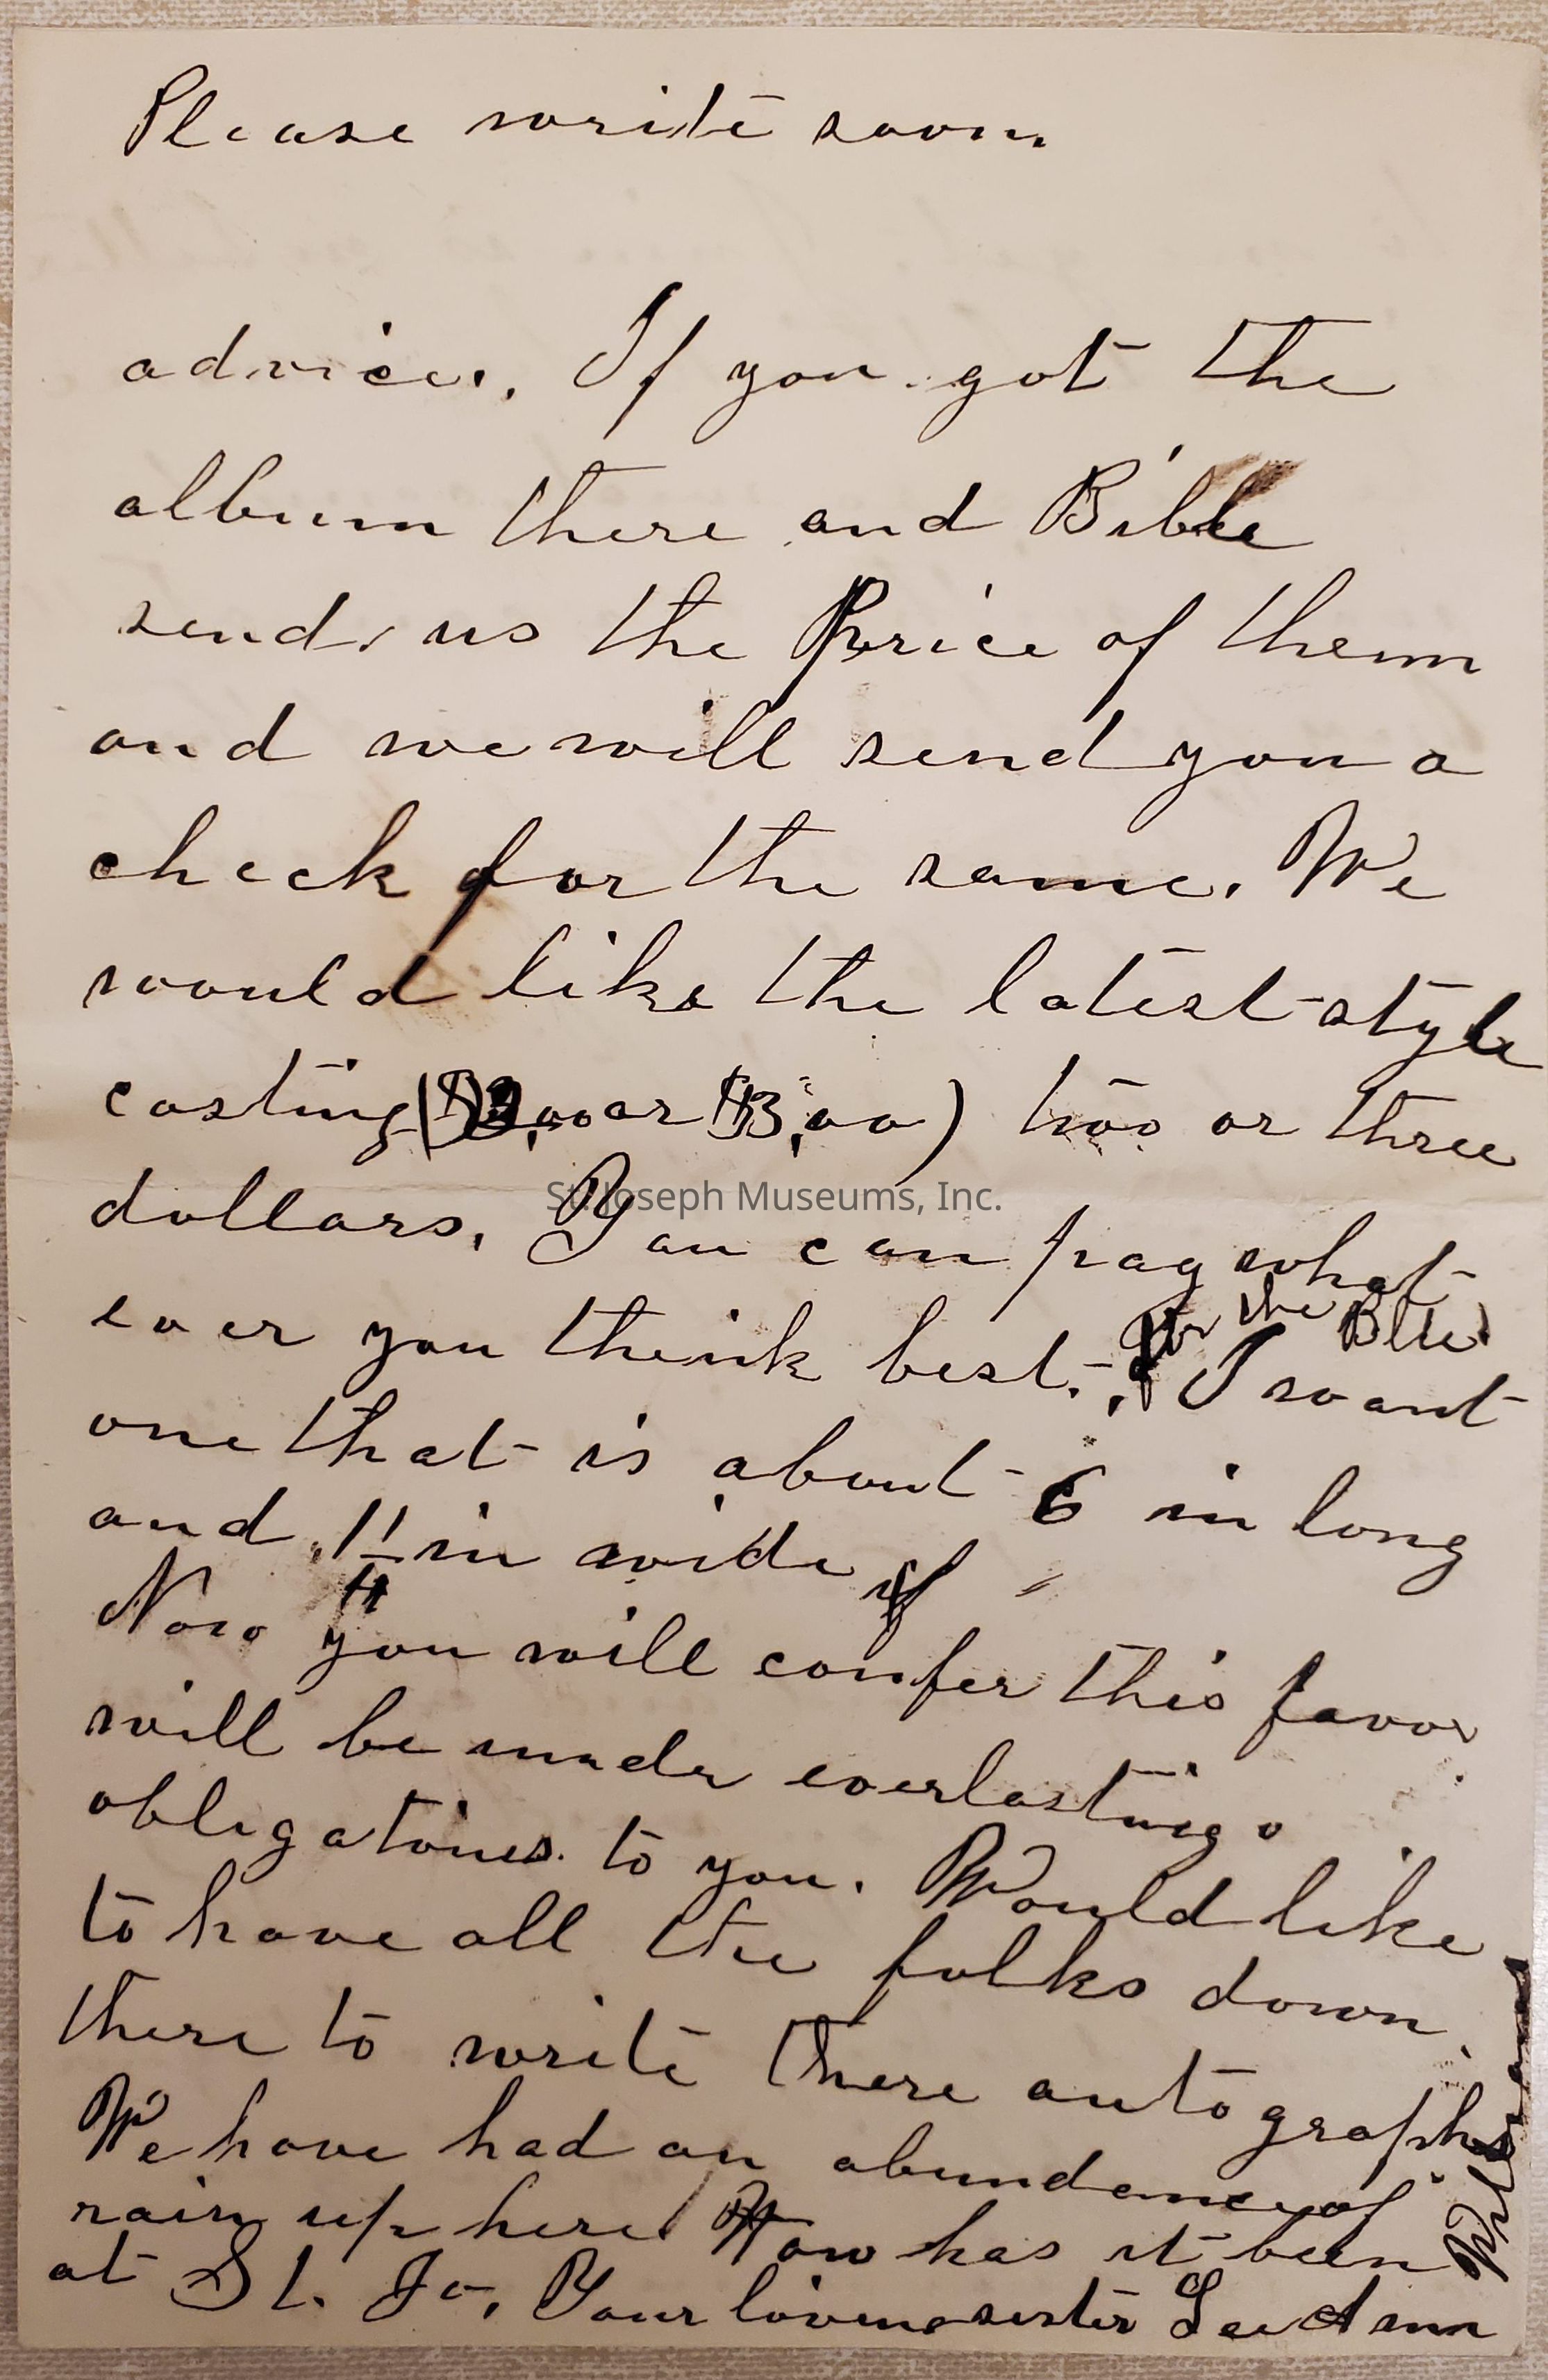 Please write soon.
advice. If you got the
album there and Bible
send us the Price of them
and we will send you a
check for the same. We
would like the latest style
costing ($2.00 or $3.00) two or three
dollars. You can pay what
ever you think best. for the Bible I want
one that is about 6 in long
and in wide
Now if you will confer this favor
will be under everlasting
obligations to you. Would like
to have all the folks down
there to write there autographs
We have had an abundancy of
rain up here How has it been
at St. Jo. Your loving sister
St. Joseph Museums, Inc.